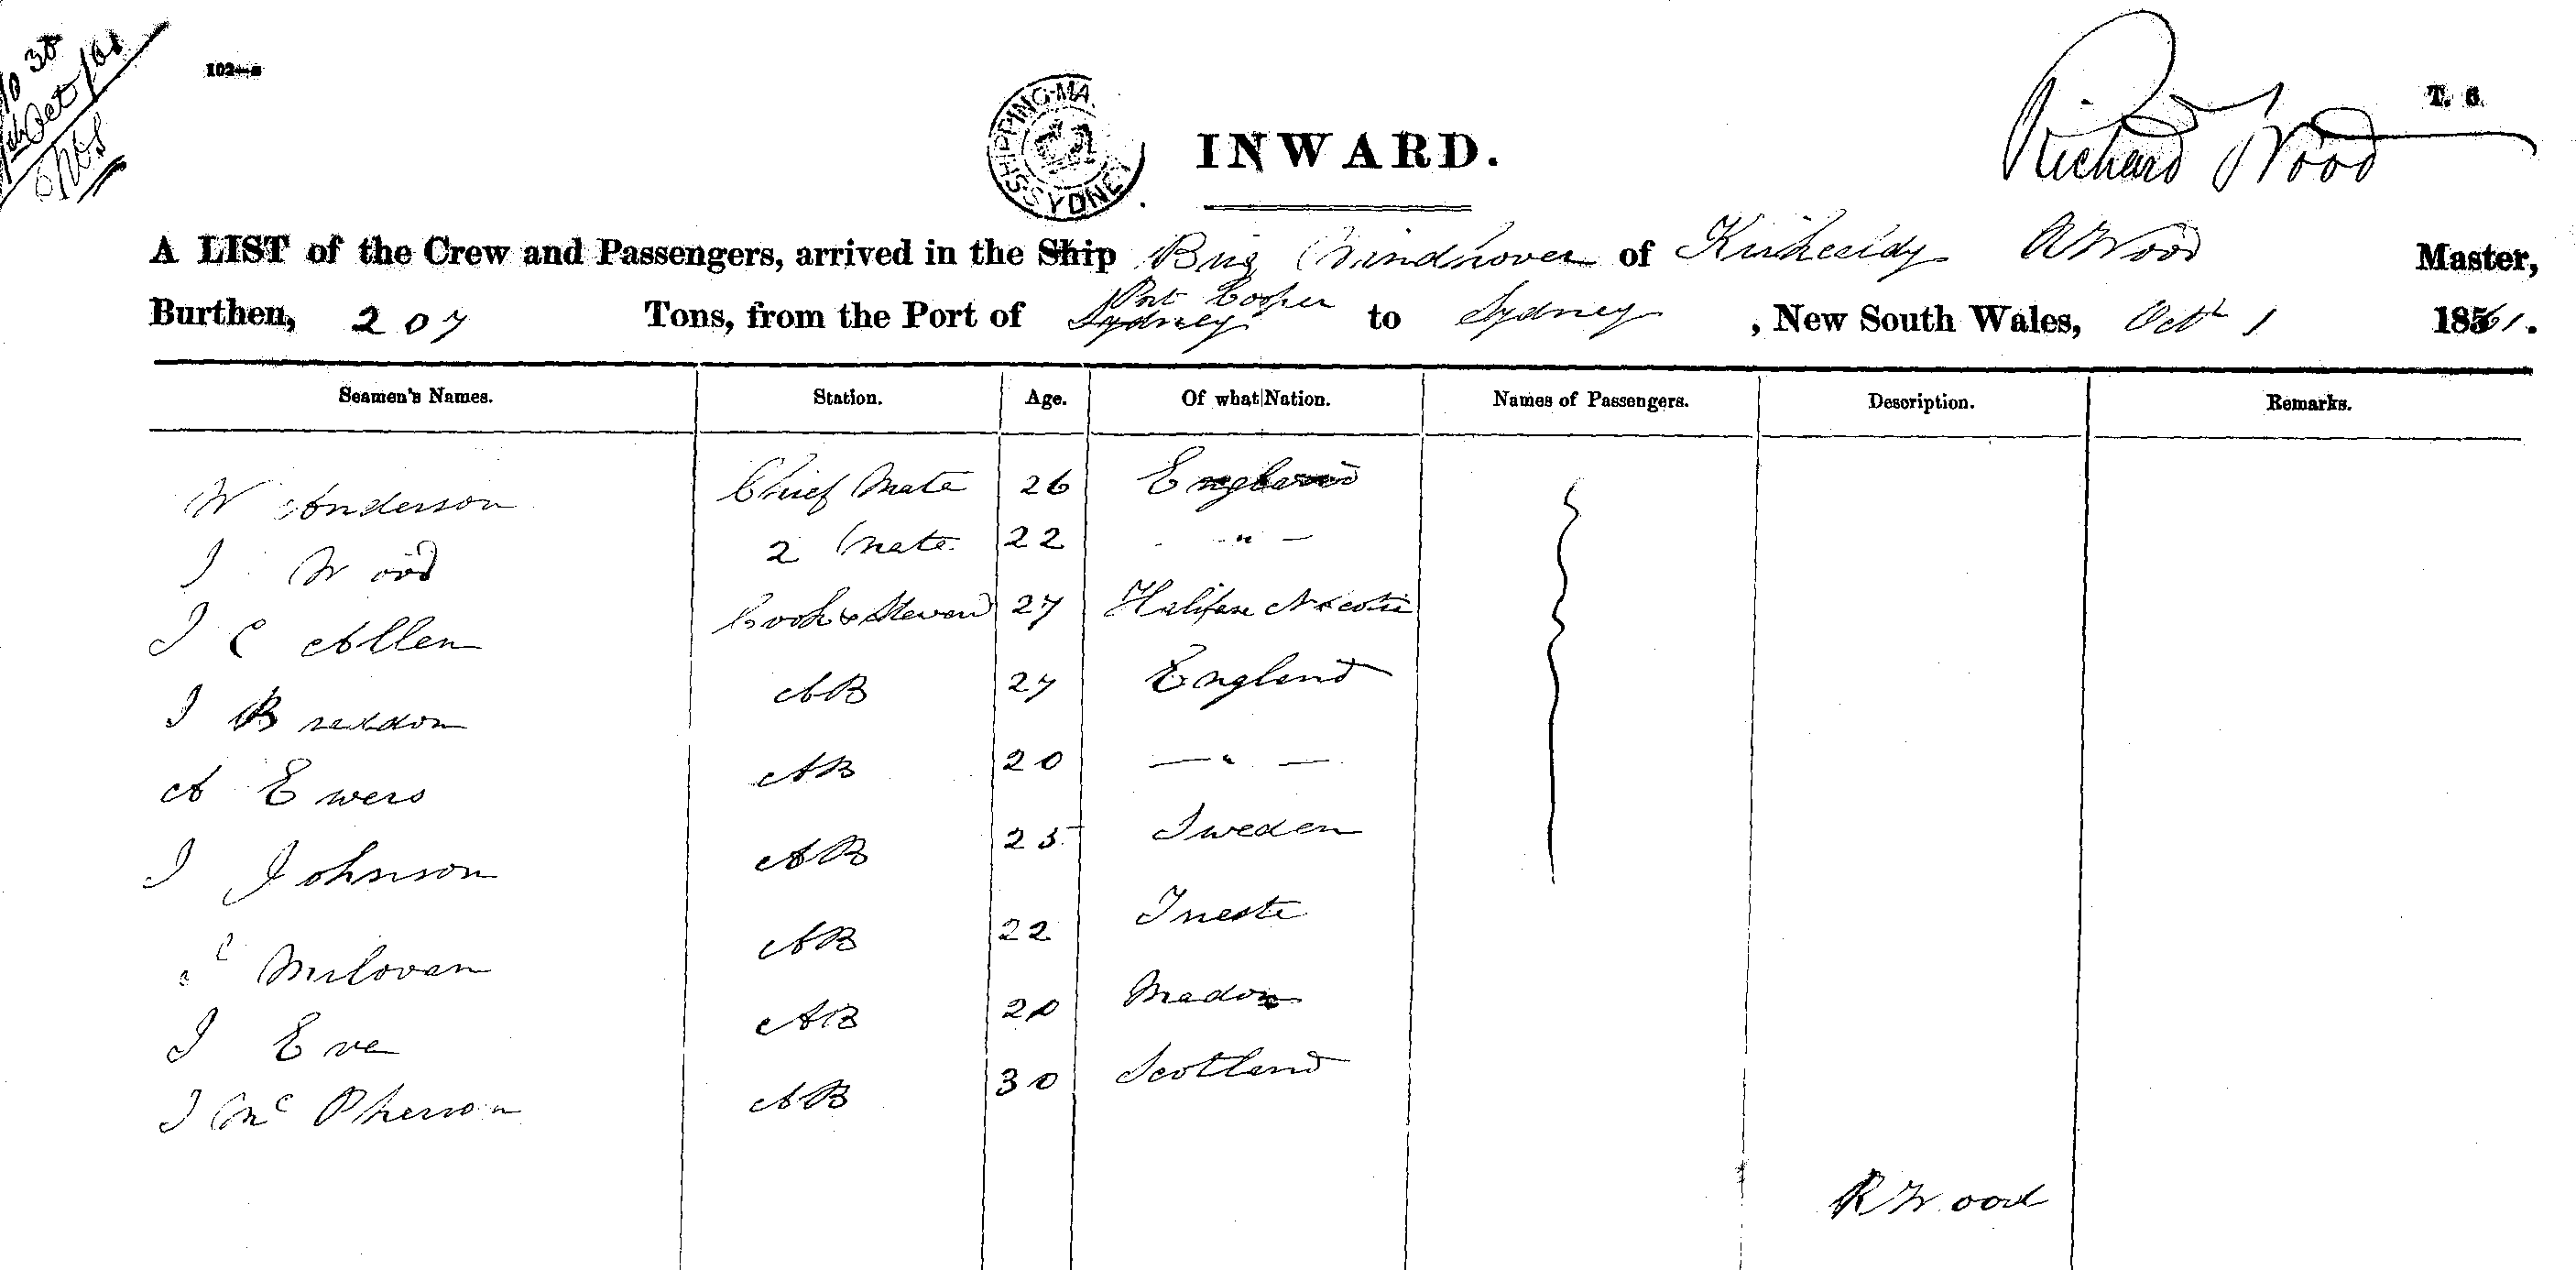 10 30
Oct /61
102—s
SHIPPING MA SYDNEY
INWARD.
Richard Wood
T. 6
A LIST of the Crew and Passengers, arrived in the Ship Brig Windhover of Kirkcaldy R Wood Master,
Port Cooper
Burthen, 207 Tons, from the Port of Sydney to Sydney, New South Wales, Oct 1 1861.
Seamen's Names. Station. Age. Of what Nation. Names of Passengers. Description. Remarks.
W Anderson Chief Mate 26 England
J Wood 2 Mate 22 — " —
J C Allen Cook & Steward 27 Halifax N Scotia
J B AB 27 England
A Ewers AB 20 — " —
J Johnson AB 25 Sweden
Milovan AB 22 Trieste
J Eve AB 20
J Mc Pherson AB 30 Scotland
R Wood